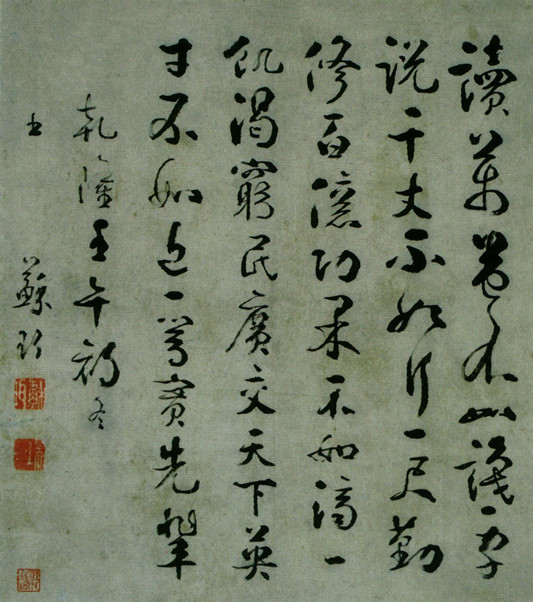 讀萬卷不如識一字
說千丈不如行一尺勤
修百億功果不如濟一
飢渴窮民廣交天下英
才不如近一篤實先輩
乾隆壬午初冬
蘇珥